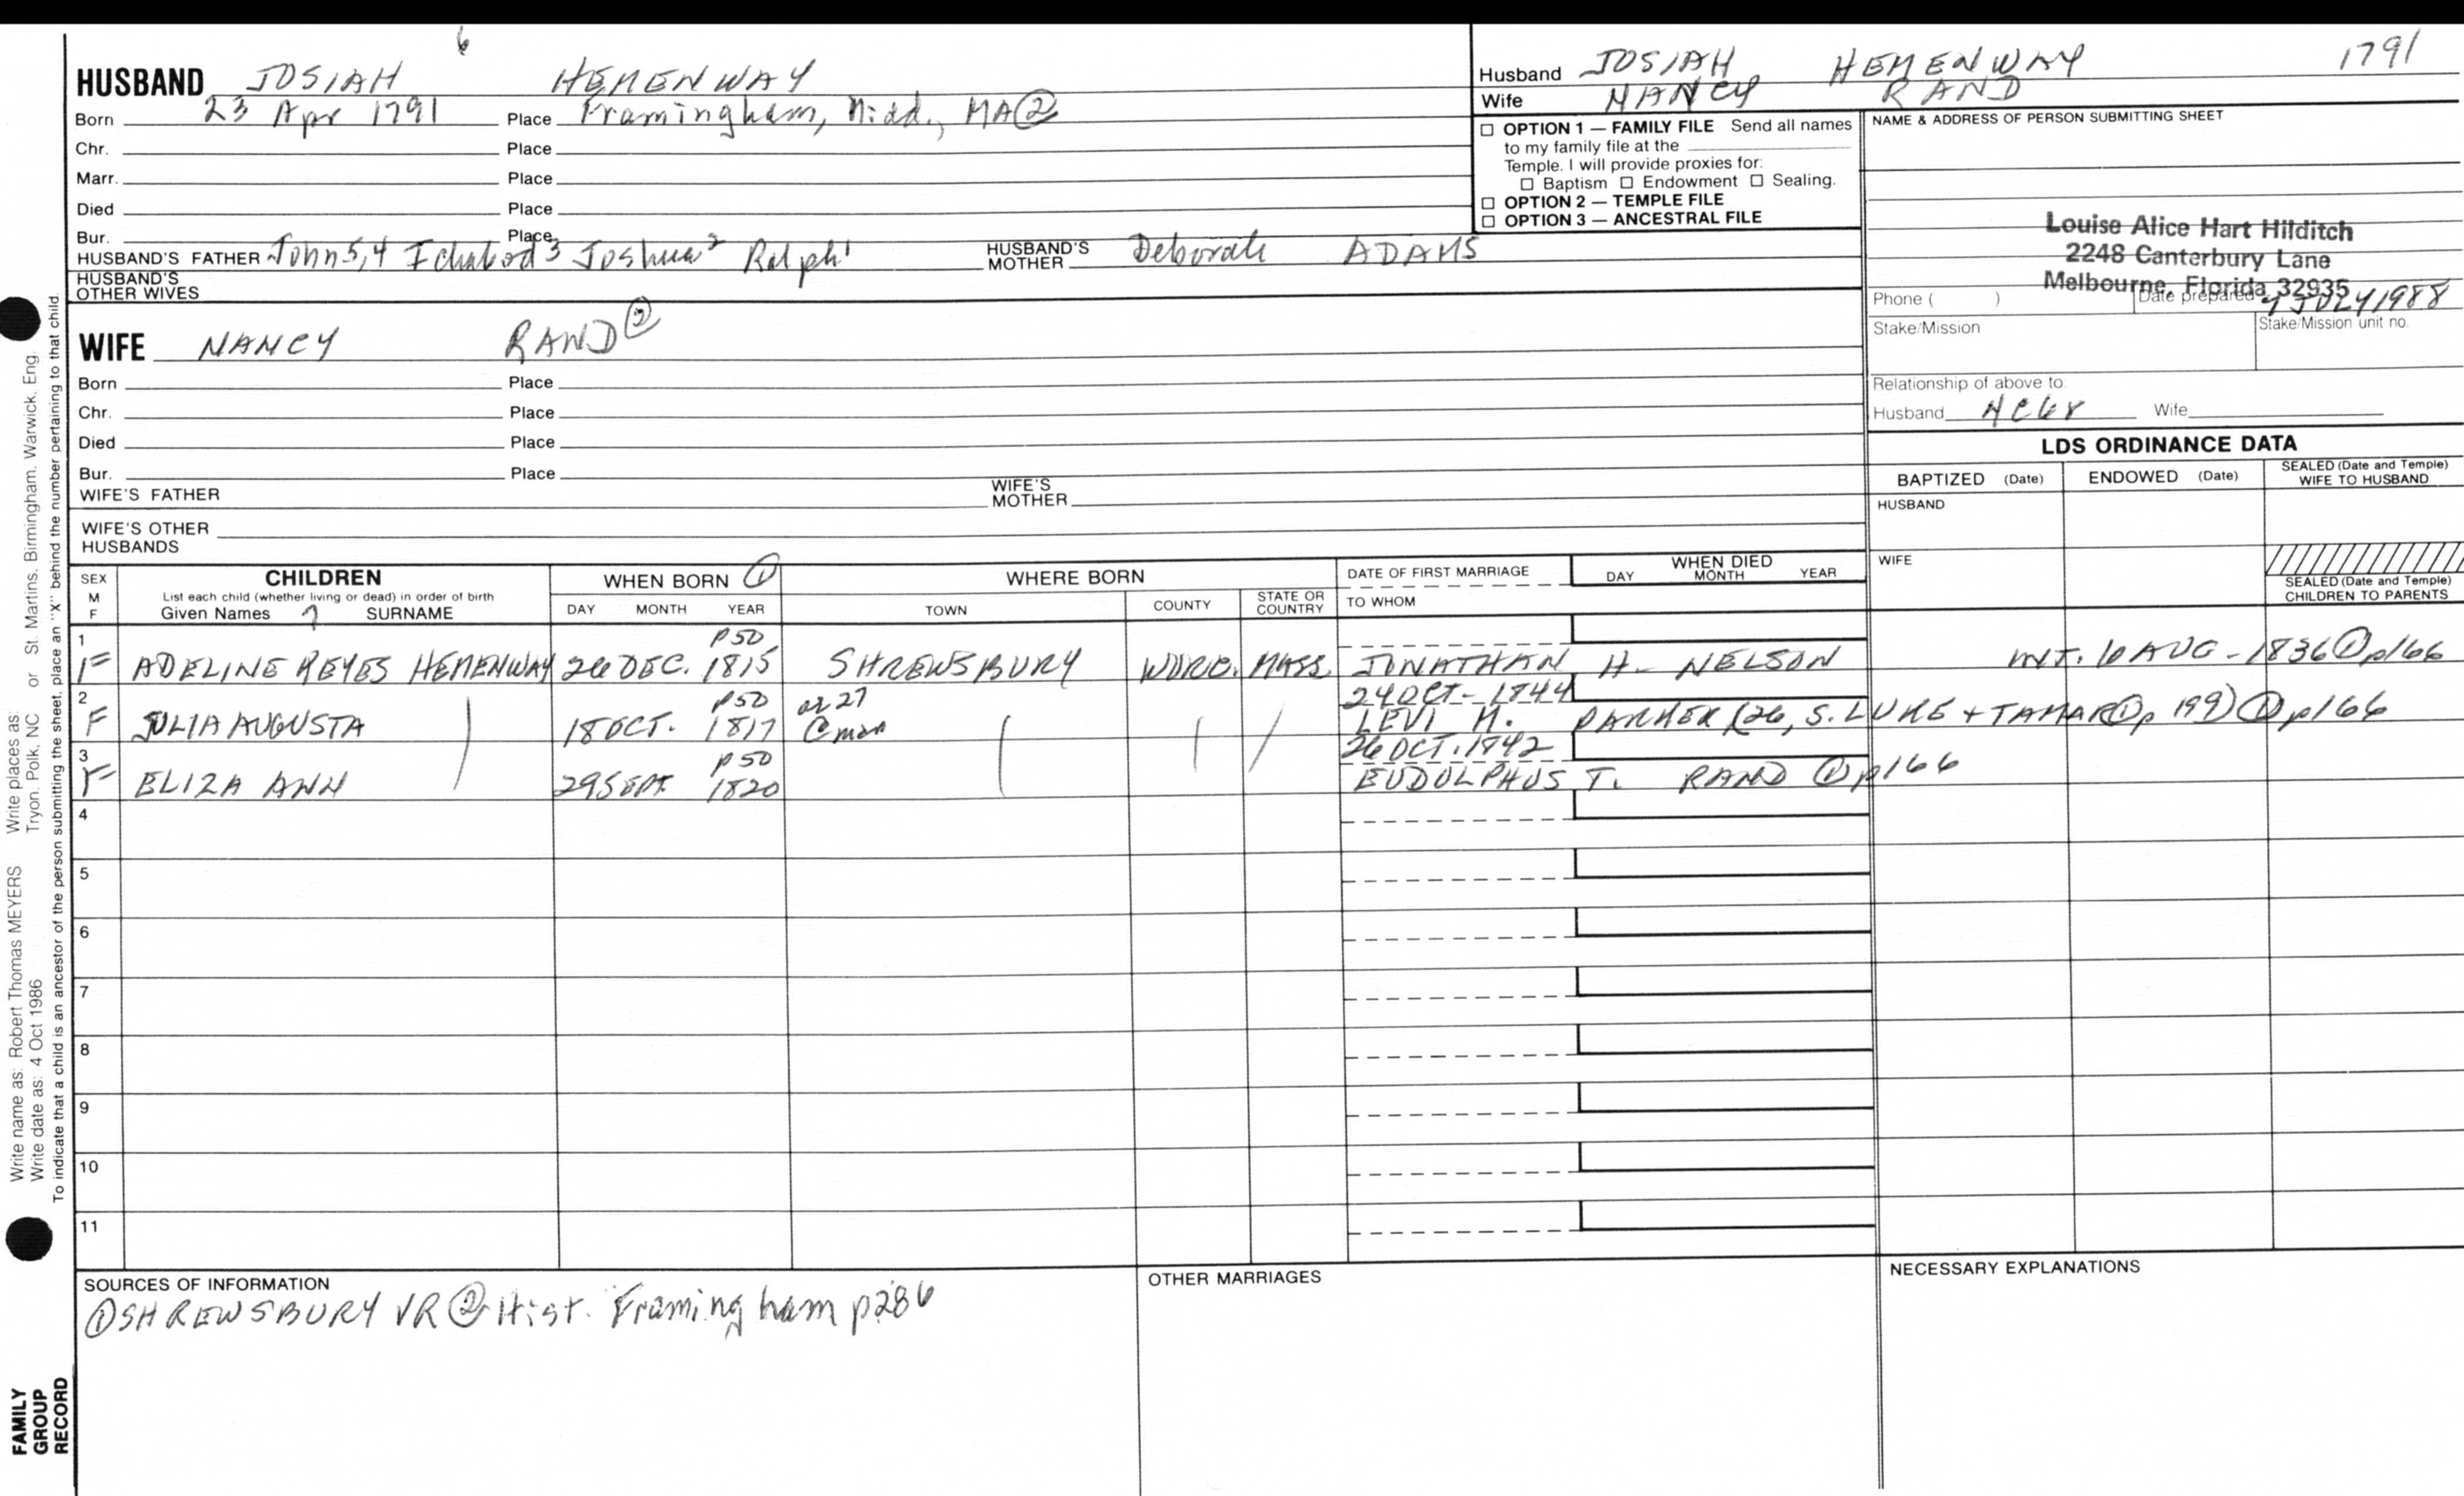 6
HUSBAND JOSIAH HEMENWAY
Born 23 Apr 1791 Place Framingham, Midd., MA ②
Chr. Place
Marr. Place
Died Place
Bur. Place
HUSBAND'S FATHER John 5,4 Ichabod 3 Joshua 2 Ralph 1 HUSBAND'S MOTHER Deborah ADAMS
HUSBAND'S OTHER WIVES
WIFE NANCY RAND ②
Born Place
Chr. Place
Died Place
Bur. Place
WIFE'S FATHER WIFE'S MOTHER
WIFE'S OTHER HUSBANDS
Husband JOSIAH HEMENWAY 1791
Wife NANCY RAND
☐ OPTION 1 — FAMILY FILE Send all names
to my family file at the
Temple. I will provide proxies for:
☐ Baptism ☐ Endowment ☐ Sealing.
☐ OPTION 2 — TEMPLE FILE
☐ OPTION 3 — ANCESTRAL FILE
NAME & ADDRESS OF PERSON SUBMITTING SHEET
Louise Alice Hart Hilditch
2248 Canterbury Lane
Melbourne, Florida 32935
Phone ( ) Date prepared JULY 1988
Stake/Mission Stake/Mission unit no.
Relationship of above to:
Husband Wife
LDS ORDINANCE DATA
BAPTIZED (Date) ENDOWED (Date) SEALED (Date and Temple) WIFE TO HUSBAND
HUSBAND
WIFE
SEALED (Date and Temple)
CHILDREN TO PARENTS
SEX M F CHILDREN WHEN BORN ① WHERE BORN DATE OF FIRST MARRIAGE WHEN DIED
List each child (whether living or dead) in order of birth
Given Names SURNAME DAY MONTH YEAR TOWN COUNTY STATE OR COUNTRY TO WHOM DAY MONTH YEAR
1 p50
F ADELINE KEYES HEMENWAY 26 DEC. 1815 SHREWSBURY WORC. MASS. JONATHAN H. NELSON INT. 10 AUG - 1836 ① p166
2 p50 27 24 OCT - 1844
F JULIA AUGUSTA 18 OCT. 1817 LEVI H. PARKER (26, S. LUKE + TAMAR ① p 199) ① p166
3 p50 26 OCT. 1842
F ELIZA ANN 29 SEPT. 1820 EUDOLPHUS T. RAND ① p166
4
5
6
7
8
9
10
11
SOURCES OF INFORMATION
① SHREWSBURY VR ② Hist. Framingham p286
OTHER MARRIAGES
NECESSARY EXPLANATIONS
Write name as: Robert Thomas MEYERS Write places as: St. Martins, Birmingham, Warwick, Eng.
Write date as: 4 Oct 1986 Tryon, Polk, NC or
To indicate that a child is an ancestor of the person submitting the sheet, place an "X" behind the number pertaining to that child.
FAMILY
GROUP
RECORD